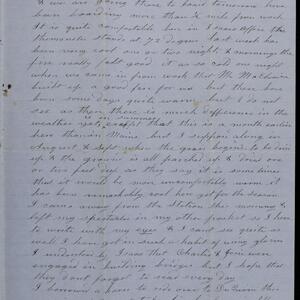 & we are going there to board tomorrow have
been boarding more than ½ mile from work
it is quite comfortable here in Texas often the
thermometer stands at 70 degrees last week has
been very cool one or two nights & mornings the
fire really felt good it was so cold one night
when we came in from work that Mr
built up a good fire for us but there has
been some days quite warm but I do not
see as then there is much difference in the
weather yet in summer is a month earlier
here than in Maine but I suppose along in
August & Sept when the grass begins to be dried
up & the ground is all parched up & dried one
or two feet deep as they say it is some times
that it would be more uncomfortably warm it
has been remarkably cool here yet for the season
I came away from the Station this morning &
left my spectacles in my other pocket so I have
to write with my eyes & I cant see quite as
well I have got in such a habit of using glasses
I understand by I was that Charlie & were
engaged in building bridges but I hope that
they dont forget to read every day
I borrowed a horse to ride over to this